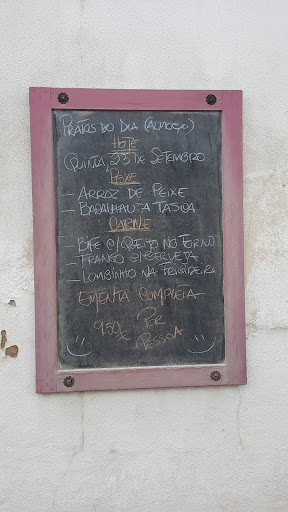 Pratos do Dia (Almoço)
Hoje
Quinta, 23 de Setembro
Peixe
- Arroz de Peixe
- Bacalhau à Tasca
Carne
- Bife c/ Queijo no Forno
- Frango c/ Cerveja
- Lombinho na Frigideira
Ementa Completa
9.50€ Por
Pessoa